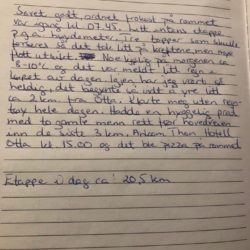 Sovet godt, ordnet frokost på rommet
Var igang kl 07.45. Lett antens etappe
p.g.a. høydemeter. topper som skulle
så det tok litt på kreftene, men nye
litt utsikt. Nøe kjølig på morgenen ca
8-10°C og det var meldt litt regn
løpet av dagen. Igjen har jeg vært så
heldig, det begynte ca midt å yre litt
ca 2 km. fra Otta. Klarte meg uten regn-
tøy hele dagen. Hadde en hyggelig prat
med to gamle menn rett før hovedveien
inn de siste 3 km. Ankom Thon Hotell
Otta kl 15.00 og det ble pizza på rommet
Etappe i dag ca: 20,5 km